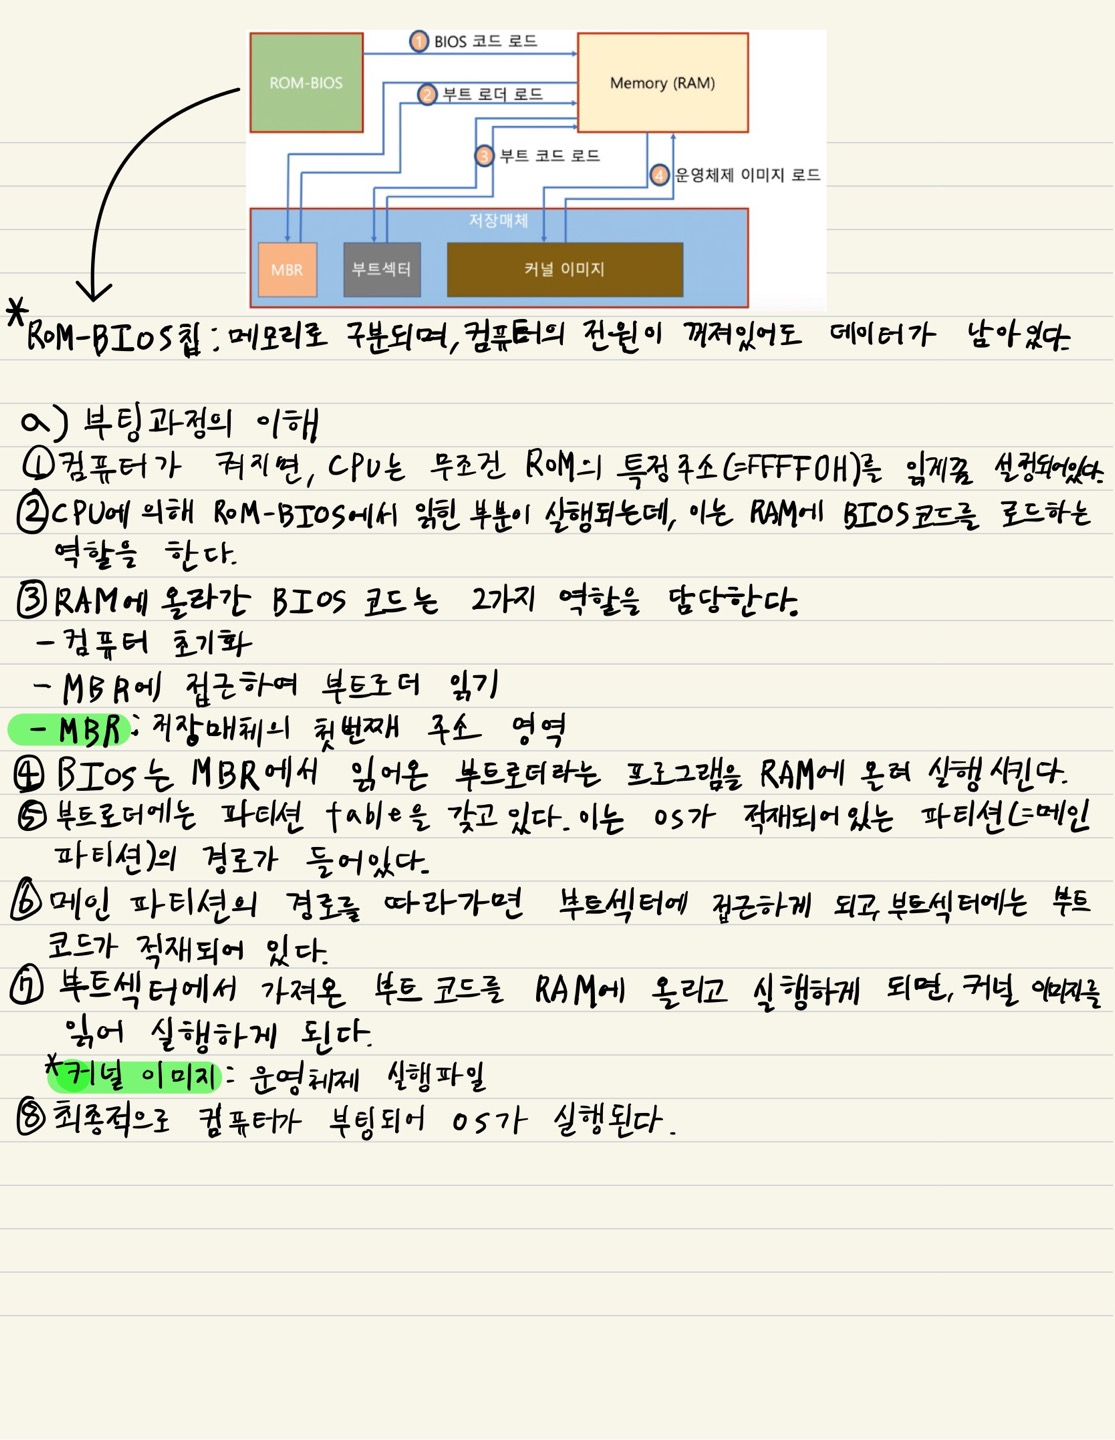 ① BIOS 코드 로드
ROM-BIOS
Memory (RAM)
② 부트 로더 로드
③ 부트 코드 로드
④ 운영체제 이미지 로드
저장매체
MBR
부트섹터
커널 이미지
* ROM-BIOS칩 : 메모리로 구분되며, 컴퓨터의 전원이 꺼져있어도 데이터가 남아있다.
a) 부팅과정의 이해
① 컴퓨터가 켜지면, CPU는 무조건 ROM의 특정주소(=FFFF0H)를 읽게끔 설정되어있다.
② CPU에 의해 ROM-BIOS에서 읽힌 부분이 실행되는데, 이는 RAM에 BIOS코드를 로드하는
역할을 한다.
③ RAM에 올라간 BIOS 코드는 2가지 역할을 담당한다.
- 컴퓨터 초기화
- MBR에 접근하여 부트로더 읽기
- MBR : 저장매체의 첫번째 주소 영역
④ BIOS는 MBR에서 읽어온 부트로더라는 프로그램을 RAM에 올려 실행시킨다.
⑤ 부트로더에는 파티션 table을 갖고있다. 이는 OS가 적재되어있는 파티션(=메인
파티션)의 경로가 들어있다.
⑥ 메인 파티션의 경로를 따라가면 부트섹터에 접근하게 되고, 부트섹터에는 부트
코드가 적재되어 있다.
⑦ 부트섹터에서 가져온 부트 코드를 RAM에 올리고 실행하게 되면, 커널 이미지를
읽어 실행하게 된다.
* 커널 이미지 : 운영체제 실행파일
⑧ 최종적으로 컴퓨터가 부팅되어 OS가 실행된다.